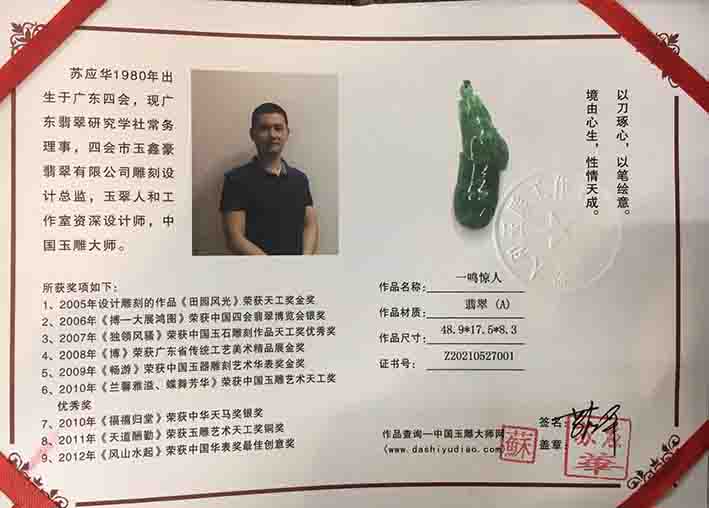 苏应华1980年出
生于广东四会，现广
东翡翠研究学社常务
理事，四会市玉鑫豪
翡翠有限公司雕刻设
计总监，玉翠人和工
作室资深设计师，中
国玉雕大师。
以刀琢心，以笔绘意。
境由心生，性情天成。
所获奖项如下：
1、2005年设计雕刻的作品《田园风光》荣获天工奖金奖
2、2006年《博一大展鸿图》荣获中国四会翡翠博览会银奖
3、2007年《独领风骚》荣获中国玉石雕刻作品天工奖优秀奖
4、2008年《博》荣获广东省传统工艺美术精品展金奖
5、2009年《畅游》荣获中国玉器雕刻艺术华表奖金奖
6、2010年《兰馨雅溢、蝶舞芳华》荣获中国玉雕艺术天工奖
优秀奖
7、2010年《福禧归堂》荣获中华天马奖银奖
8、2011年《天道酬勤》荣获玉雕艺术天工奖铜奖
9、2012年《风山水起》荣获中国华表奖最佳创意奖
作品名称：一鸣惊人
作品材质：翡翠 (A)
作品尺寸：48.9*17.5*8.3
证书号：Z20210527001
签名：
盖章：
作品查询—中国玉雕大师网
(www.dashiyudiao.com)
蘇